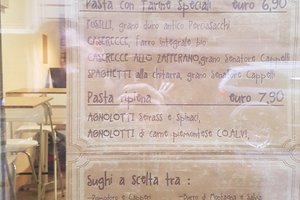 Pasta con Farine Speciali euro 6,90
FUSILLI, grano duro antico Perciasacchi
CASERECCE, Farro integrale bio
CASERECCE ALLO ZAFFERANO, grano Senatore Cappelli
SPAGHETTI alla chitarra, grano Senatore Cappelli
Pasta ripiena euro 7,90
AGNOLOTTI Seirass e Spinaci,
AGNOLOTTI di carne piemontese CO.ALVI,
Sughi a scelta tra :
- Pomodoro e Capperi - Burro di Montagna e Salvia